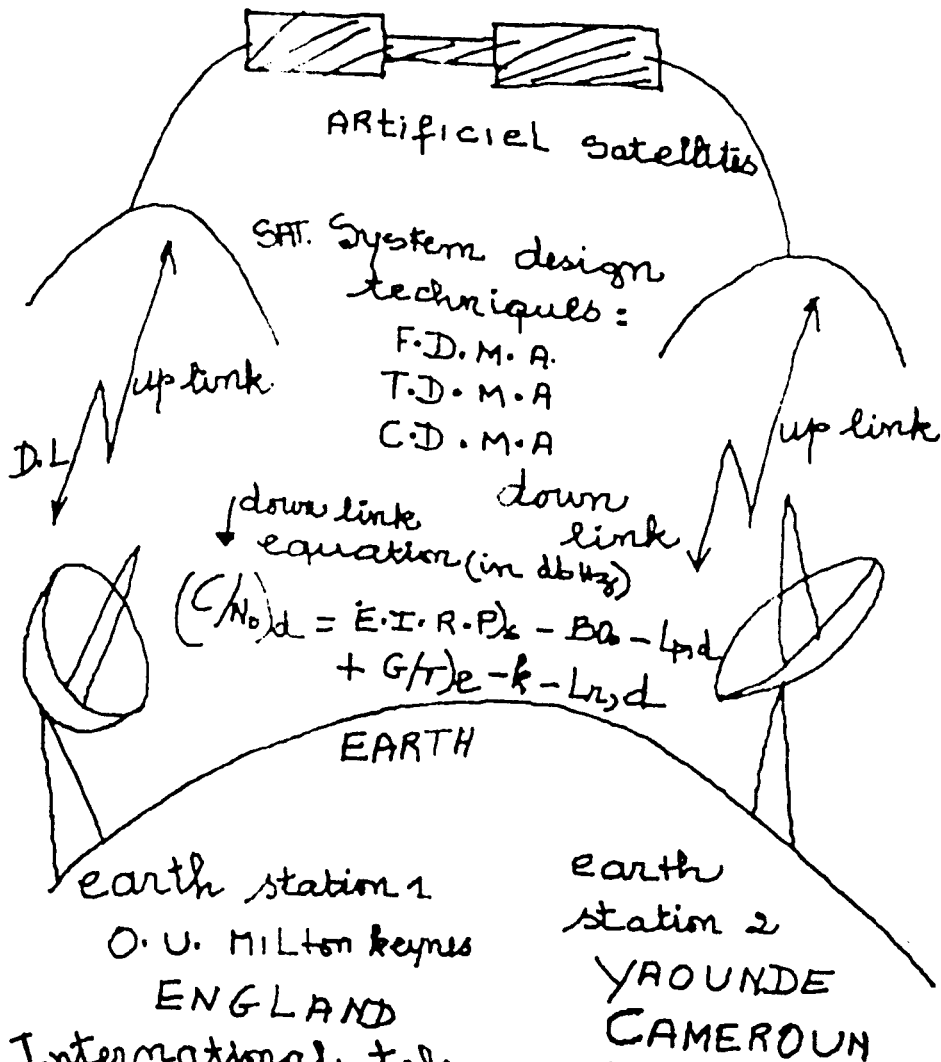 ARtificiel satellites
SAT. System design
techniques :
F.D.M.A.
T.D.M.A
C.D.M.A
up link.
D.L
up link
down
link
down link
equation (in dbHz)
(C/N₀)d = E.I.R.P)s - BO₀ - Lp,d
+ G/T)e - k - Lr,d
EARTH
earth station 1
O.U. MILton keynes
ENGLAND
earth
station 2
YAOUNDE
CAMEROUN
International